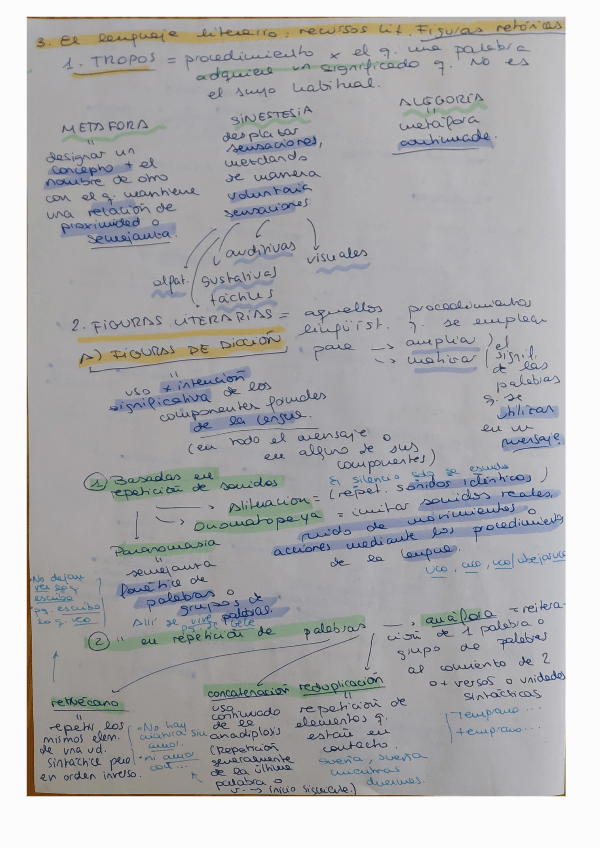 3. El lenguaje literario: recursos lit. Figuras retóricas
1. TROPOS = procedimiento x el q. una palabra
adquiere un significado q. no es
el suyo habitual.
METÁFORA
"
designar un
concepto + el
nombre de otro
con el q. mantiene
una relación de
proximidad o
semejanza.
SINESTESIA
"
desplazar
sensaciones,
mezclando
de manera
voluntaria
sensaciones
ALEGORÍA
"
metáfora
continuada.
olfat.
gustativas
táctiles
auditivas
visuales
2. FIGURAS LITERARIAS = aquellos procedimientos
lingüist. q. se emplean
para -> ampliar
-> motivar
el
signif.
de las
palabras
q. se
utilizan
en un
mensaje.
A) FIGURAS DE DICCIÓN
"
uso + intención
significativa de los
componentes formales
de la lengua.
(en todo el mensaje o
en alguno de sus
componentes)
1 Basadas en
repetición de sonidos
-> Aliteración = (repet. sonidos idénticos)
-> Onomatopeya = imitar sonidos reales,
ruido de movimientos o
acciones mediante los procedimientos
de la lengua.
Paranomasia
"
semejanza
fonética de
palabras o
grupos de
palabras.
Allí se vive
pq. se bebe
2 " en repetición de palabras
-> anáfora = reitera-
ción de 1 palabra o
grupo de palabras
al comienzo de 2
o + versos o unidades
sintácticas
Temprano...
temprano...
retruécano
"
repetir los
mismos elem.
de una ud.
sintáctica pero
en orden inverso.
concatenación
uso
continuado
de la
anadiplosis
(Repetición
generalmente
de la última
palabra o
v. -> inicio siguiente.)
reduplicación
"
repetición de
elementos q.
están en
contacto.
sueña, sueña
mientras
duermes.